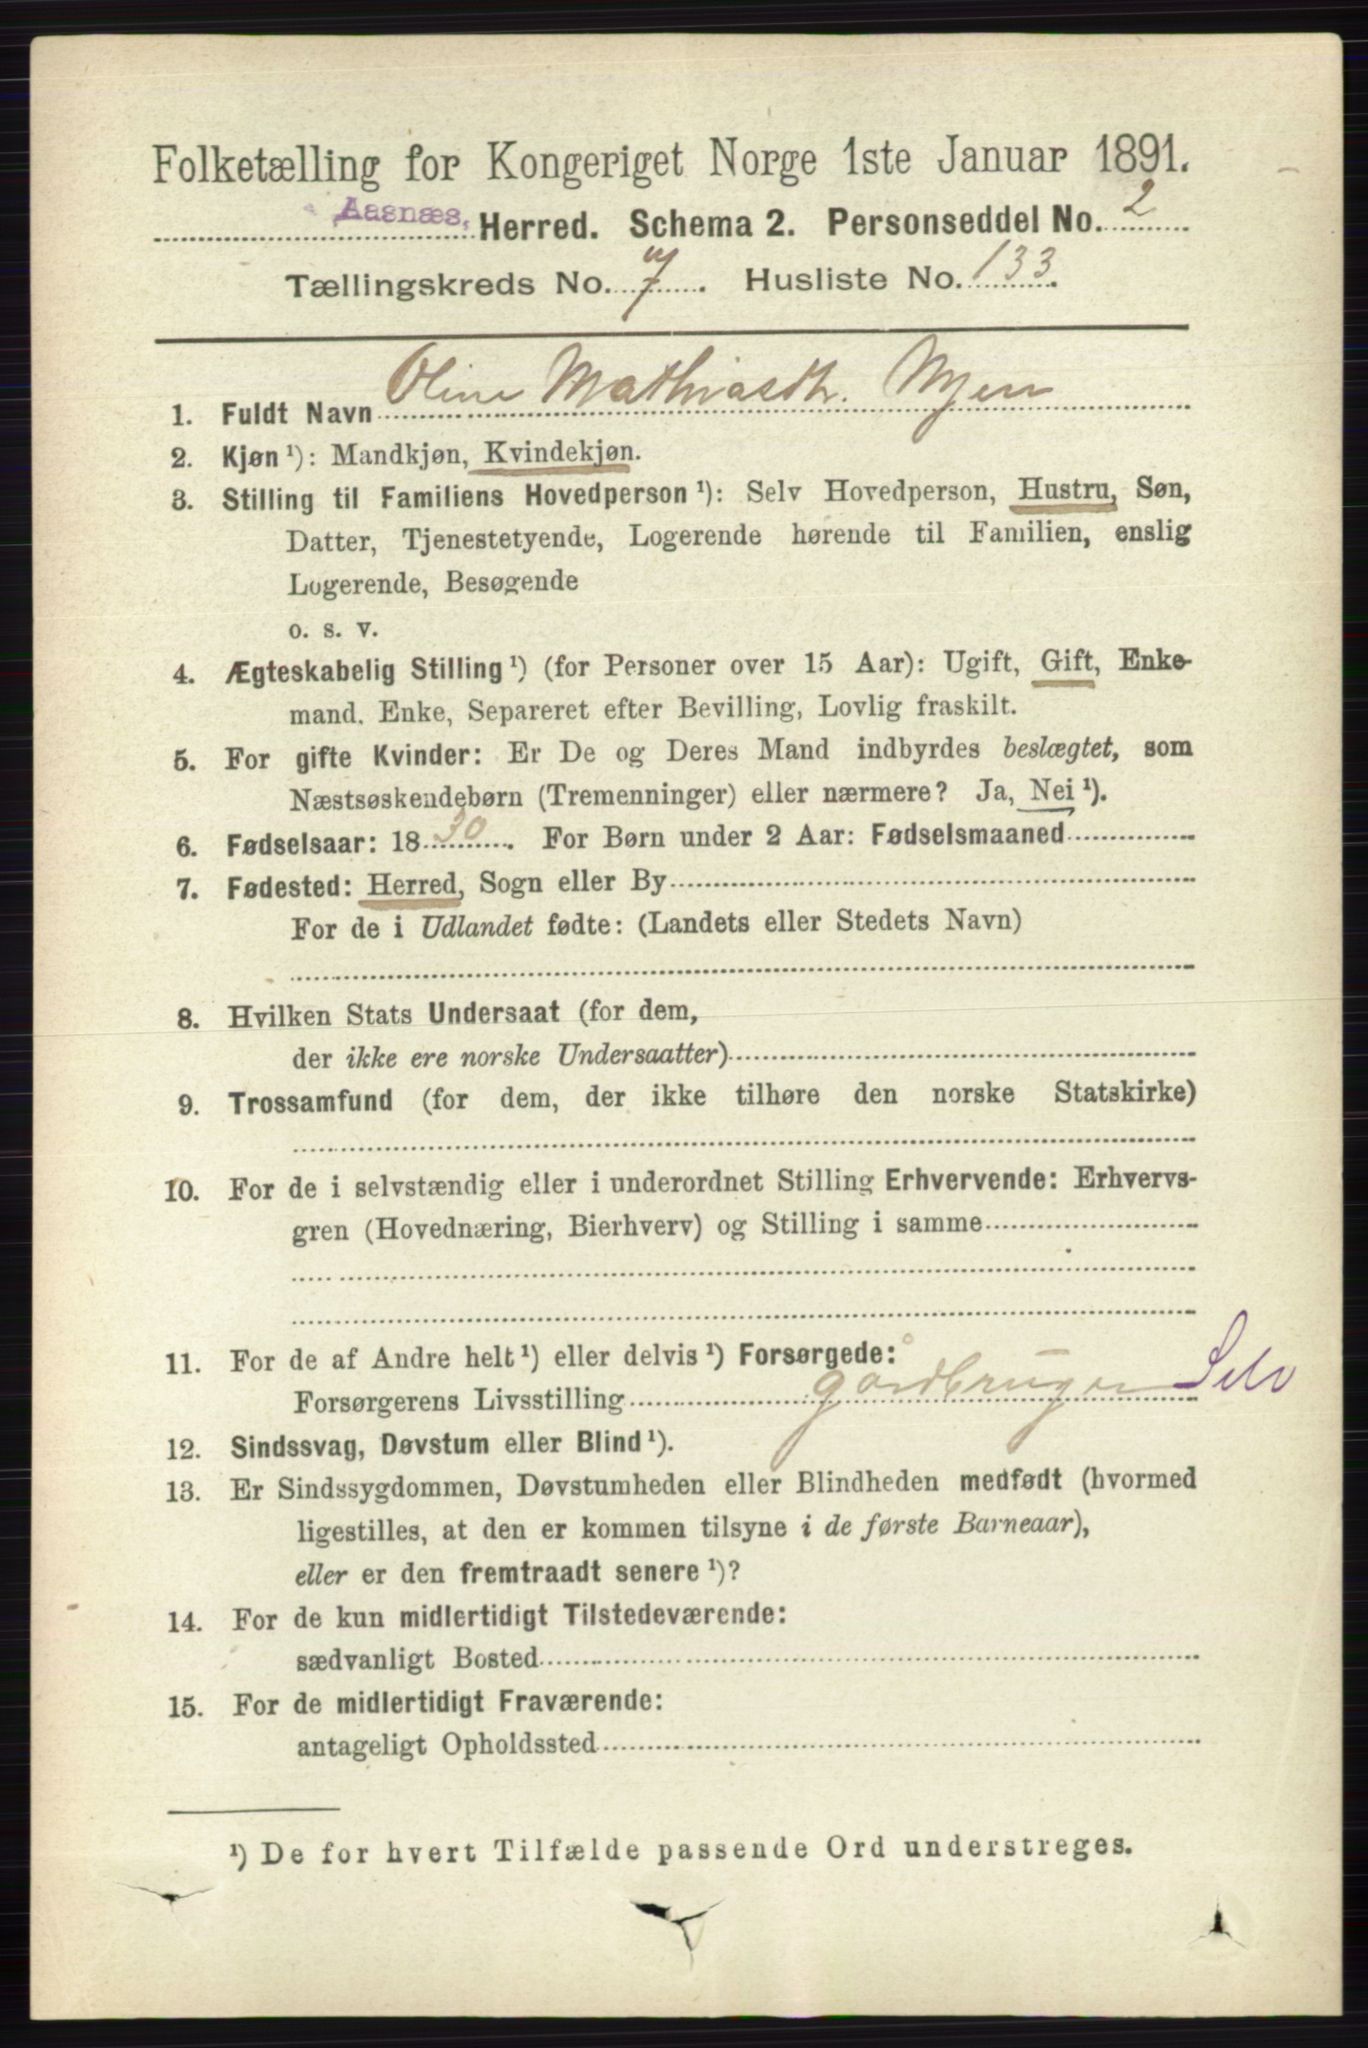 Folketælling for Kongeriget Norge 1ste Januar 1891.
Aasnæs, Herred. Schema 2. Personseddel No. 2
Tællingskreds No. 7. Husliste No. 133.
1. Fuldt Navn Oline Mathiasdtr. Myen
2. Kjøn ¹): Mandkjøn, Kvindekjøn.
3. Stilling til Familiens Hovedperson ¹): Selv Hovedperson, Hustru, Søn,
Datter, Tjenestetyende, Logerende hørende til Familien, enslig
Logerende, Besøgende
o. s. v.
4. Ægteskabelig Stilling ¹) (for Personer over 15 Aar): Ugift, Gift, Enke-
mand. Enke, Separeret efter Bevilling, Lovlig fraskilt.
5. For gifte Kvinder: Er De og Deres Mand indbyrdes beslægtet, som
Næstsøskendebørn (Tremenninger) eller nærmere? Ja, Nei ¹).
6. Fødselsaar: 1830. For Børn under 2 Aar: Fødselsmaaned
7. Fødested: Herred, Sogn eller By
For de i Udlandet fødte: (Landets eller Stedets Navn)
8. Hvilken Stats Undersaat (for dem,
der ikke ere norske Undersaatter)
9. Trossamfund (for dem, der ikke tilhøre den norske Statskirke)
10. For de i selvstændig eller i underordnet Stilling Erhvervende: Erhvervs-
gren (Hovednæring, Bierhverv) og Stilling i samme
11. For de af Andre helt ¹) eller delvis ¹) Forsørgede:
Forsørgerens Livsstilling gårdbruger Selv
12. Sindssvag, Døvstum eller Blind ¹).
13. Er Sindssygdommen, Døvstumheden eller Blindheden medfødt (hvormed
ligestilles, at den er kommen tilsyne i de første Barneaar),
eller er den fremtraadt senere ¹)?
14. For de kun midlertidigt Tilstedeværende:
sædvanligt Bosted
15. For de midlertidigt Fraværende:
antageligt Opholdssted
¹) De for hvert Tilfælde passende Ord understreges.